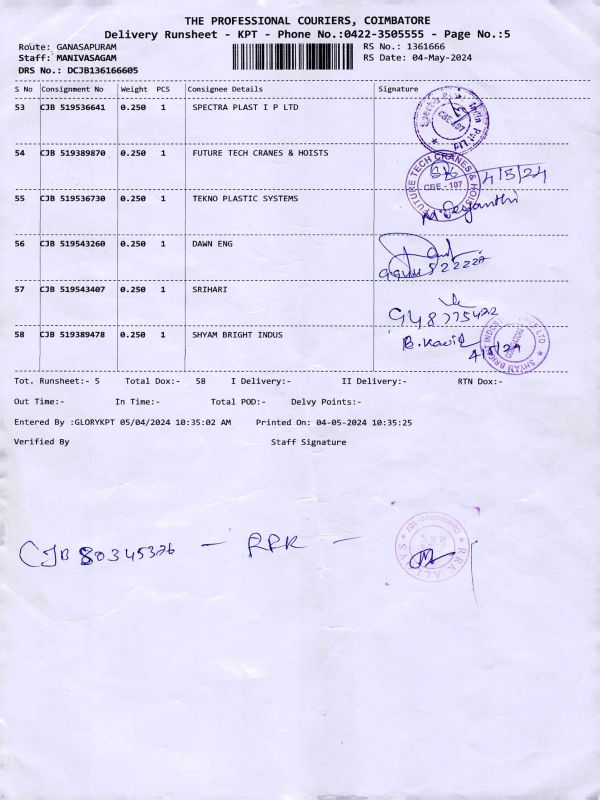 THE PROFESSIONAL COURIERS, COIMBATORE
Delivery Runsheet - KPT - Phone No.:0422-3505555 - Page No.:5
Route: GANASAPURAM RS No.: 1361666
Staff: MANIVASAGAM RS Date: 04-May-2024
DRS No.: DCJB136166605
S No Consignment No Weight PCS Consignee Details Signature
53 CJB 519536641 0.250 1 SPECTRA PLAST I P LTD
54 CJB 519389870 0.250 1 FUTURE TECH CRANES & HOISTS
FUTURE TECH CRANES & HOISTS CBE - 107
4/5/24
55 CJB 519536730 0.250 1 TEKNO PLASTIC SYSTEMS
56 CJB 519543260 0.250 1 DAWN ENG
57 CJB 519543407 0.250 1 SRIHARI
58 CJB 519389478 0.250 1 SHYAM BRIGHT INDUS
4/5/24
Tot. Runsheet:- 5 Total Dox:- 58 I Delivery:- II Delivery:- RTN Dox:-
Out Time:- In Time:- Total POD:- Delvy Points:-
Entered By :GLORYKPT 05/04/2024 10:35:02 AM Printed On: 04-05-2024 10:35:25
Verified By Staff Signature
CJB 80345326 - RRK -